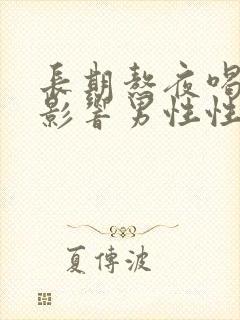 長期熬夜喝
影響男性性
夏傳波